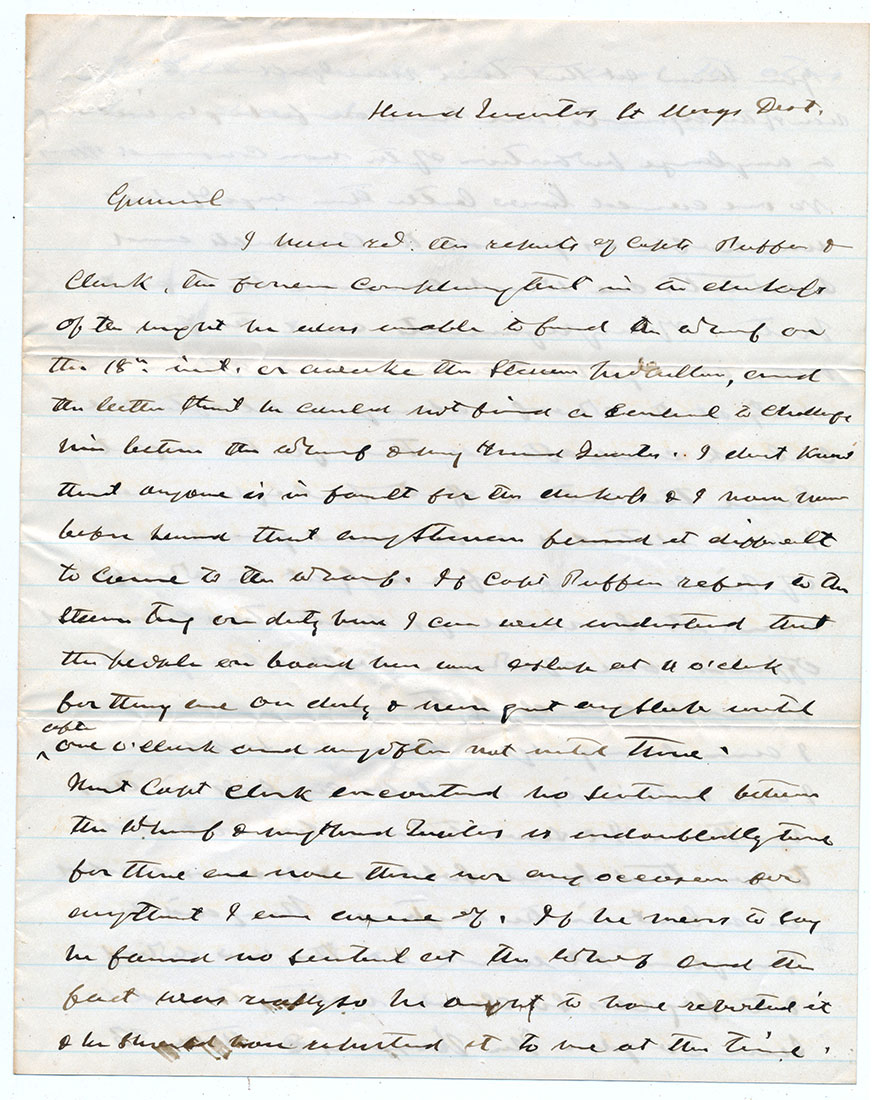 Head Quarters St Marys Dist.
General
I have recd. the reports of Capts Puffer &
Clark, the former complaining that in the darkness
of the night he was unable to find the wharf on
the 18th inst. or awake the Steamer, and
the latter that he could not find a Sentinel to challenge
him between the Wharf & my Head Quarters. I don't know
that anyone is in fault for the darkness & I have never
before heard that any Steamer found it difficult
to come to the Wharf. If Capt Puffer refers to the
Steam tug on duty here I can well understand that
the people on board her were asleep at 11 o'clock
for they are on duty & never get any sleep until
after
one o'clock and very often not until three.
That Capt Clark encountered no sentinel between
the Wharf & my Head Quarters is undoubtedly true
for there are none there nor any occasion for
any that I am aware of. If he means to say
he found no sentinel at the Wharf and the
fact was really so he ought to have reported it
& he should have reported it to me at the time.